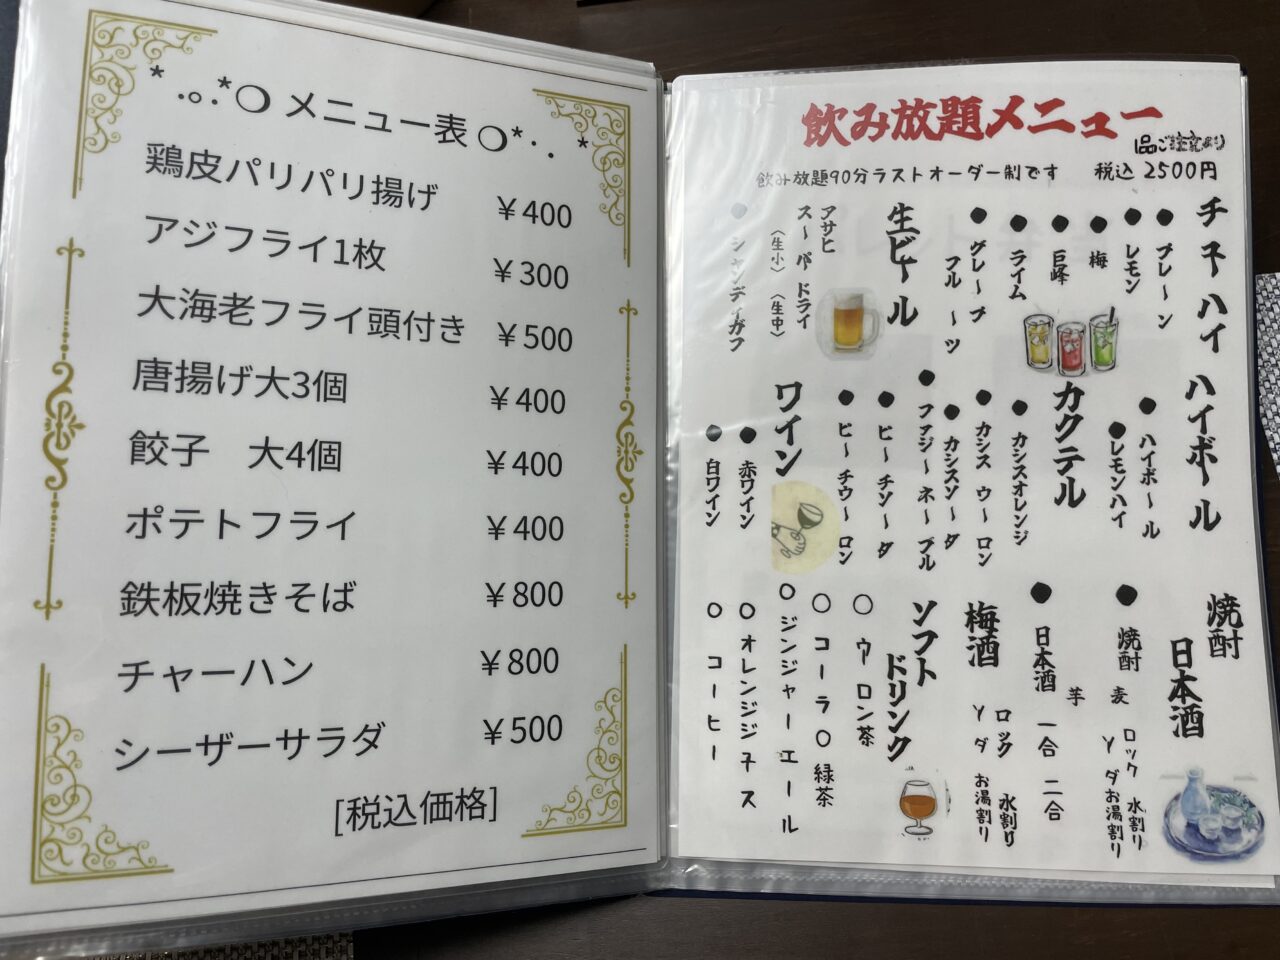 *.｡.*○ メニュー表 ○*・. *
鶏皮パリパリ揚げ ￥400
アジフライ1枚 ￥300
大海老フライ頭付き ￥500
唐揚げ大3個 ￥400
餃子　大4個 ￥400
ポテトフライ ￥400
鉄板焼きそば ￥800
チャーハン ￥800
シーザーサラダ ￥500
[税込価格]
飲み放題メニュー
品ご注文より
飲み放題90分ラストオーダー制です　税込 2500円
チューハイ
●プレーン
●レモン
●梅
●巨峰
●ライム
●グレープフルーツ
生ビール
アサヒ
スーパードライ
〈生小〉〈生中〉
●シャンディガフ
ハイボール
●ハイボール
●レモンハイ
カクテル
●カシスオレンジ
●カシスウーロン
●カシスソーダ
●ファジーネーブル
●ピーチソーダ
●ピーチウーロン
ワイン
●赤ワイン
●白ワイン
焼酎
日本酒
●焼酎　麦　芋
ロック　水割り
ソーダ　お湯割り
●日本酒　一合　二合
梅酒
ロック　水割り
ソーダ　お湯割り
ソフトドリンク
○ウーロン茶
○コーラ○緑茶
○ジンジャーエール
○オレンジジュース
○コーヒー